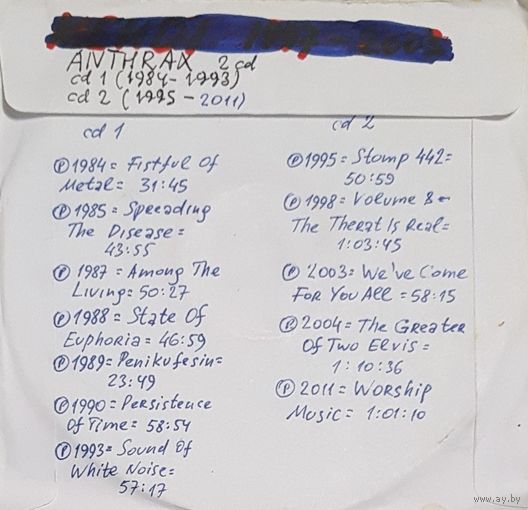 ANTHRAX 2cd
cd 1 (1984-1993)
cd 2 (1995-2011)
cd 1
Ⓟ1984= Fistful Of
Metal= 31:45
Ⓟ1985= Speeading
The Disease=
43:55
Ⓟ 1987 = Among The
Living= 50:27
Ⓟ1988= State Of
Euphoria= 46:59
Ⓟ1989= Penikufesin=
23:49
Ⓟ1990= Persistence
Of Time= 58:54
Ⓟ1993= Sound Of
White Noise=
57:17
cd 2
Ⓟ1995= Stomp 442=
50:59
Ⓟ1998= Volume 8-
The Therat Is Real=
1:03:45
Ⓟ 2003= We've Come
For You All = 58:15
Ⓟ2004= The Greater
Of Two Elvis=
1:10:36
Ⓟ2011= Worship
Music= 1:01:10
www.ay.by